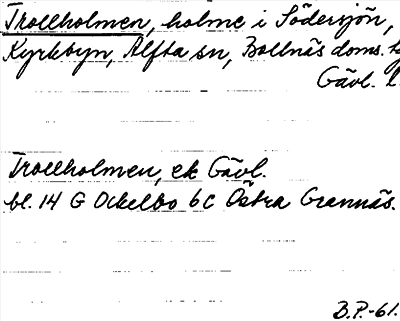 Trollholmen, holme i Södersjön,
Kyrkbyn, Alfta sn, Bollnäs doms. 
Gävl. l.
Trollholmen, ek Gävl.
bl. 14 G Ockelbo 6c Östra Grannäs.
B.P.-61.